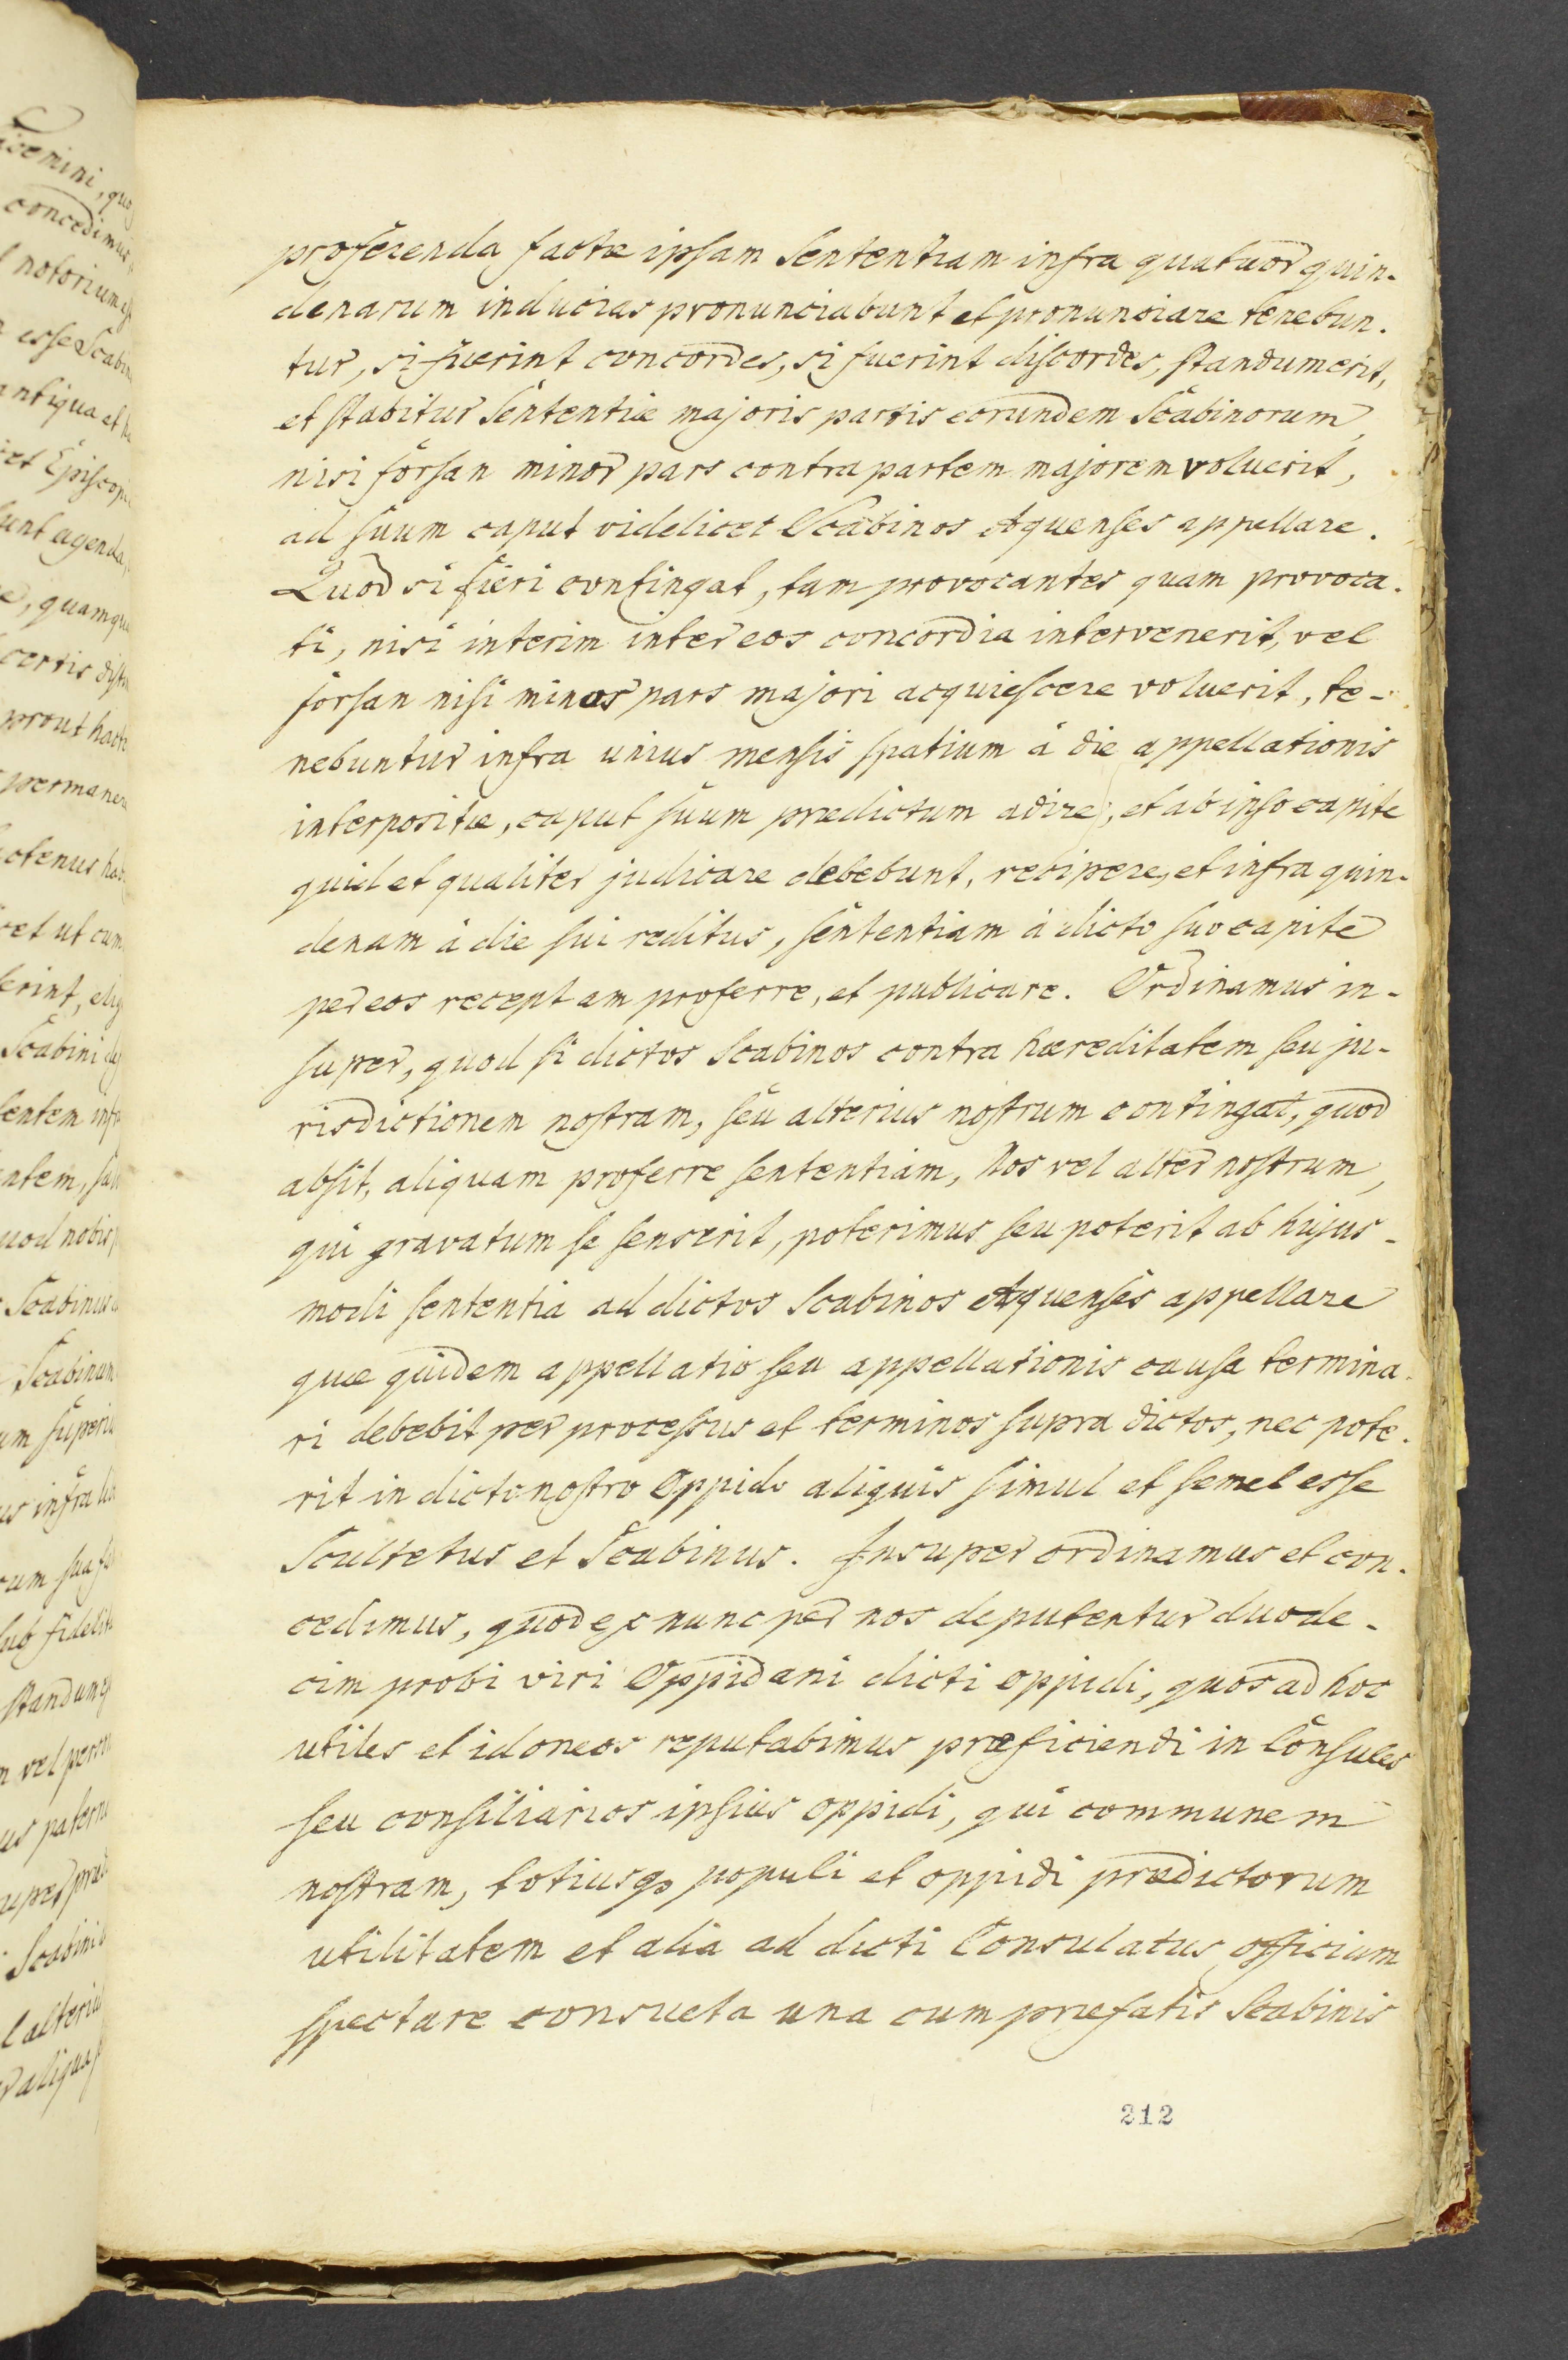 proferenda factæ ipsam Sententiam infra quatuor quin-
denarum inducias pronunciabunt et pronunciare tenebun-
tur, si fuerint concordes, si fuerint discordes, standum erit,
et stabitur Sententiæ majoris partis eorundem Scabinorum,
nisi forsan minor pars contra partem majorem voluerit,
ad suum caput videlicet Scabinos Aquenses appellare.
Quod si fieri contingat, tam provocantes quam provoca-
ti, nisi interim inter eos concordia intervenerit, vel
forsan nisi minor pars majori acquiescere voluerit, te-
nebuntur infra unius mensis spatium à die appellationis
interpositæ, caput suum prædictum adire, et ab ipso capite
quid et qualiter judicare debebunt, recipere, et infra quin-
denam à die sui reditus, sententiam à dicto suo capite
per eos receptam proferre, et publicare. Ordinamus in-
super, quod si dictos Scabinos contra hæreditatem seu ju-
risdictionem nostram, seu alterius nostrum contingat, quod
absit, aliquam proferre sententiam, Nos vel alter nostrum,
qui gravatum se senserit, poterimus seu poterit ab hujus-
modi sententia ad dictos Scabinos Aquenses appellare
quæ quidem appellatio seu appellationis causa termina-
ri debebit per processus et terminos supra dictos, nec pote-
rit in dicto nostro Oppido aliquis simul et semel esse
Scultetus et Scabinus. Insuper ordinamus et con-
cedimus, quod ex nunc per nos deputentur duode-
cim probi viri Oppidani dicti oppidi, quos ad hoc
utiles et idoneos reputabimus præficiendi in Consules
seu consiliarios ipsius oppidi, qui communem
nostram, totiusq3 populi et oppidi prædictorum
utilitatem et alia ad dicti Consulatus officium
spectare consueta una cum præfatis Scabinis
212